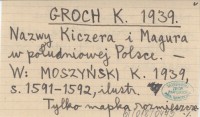 GROCH K. 1939.
Nazwy Kiczera i Magura
w południowej Polsce. —
W: MOSZYŃSKI K. 1939,
s. 1591-1592, ilustr.
Tylko mapka rozmieszcz.